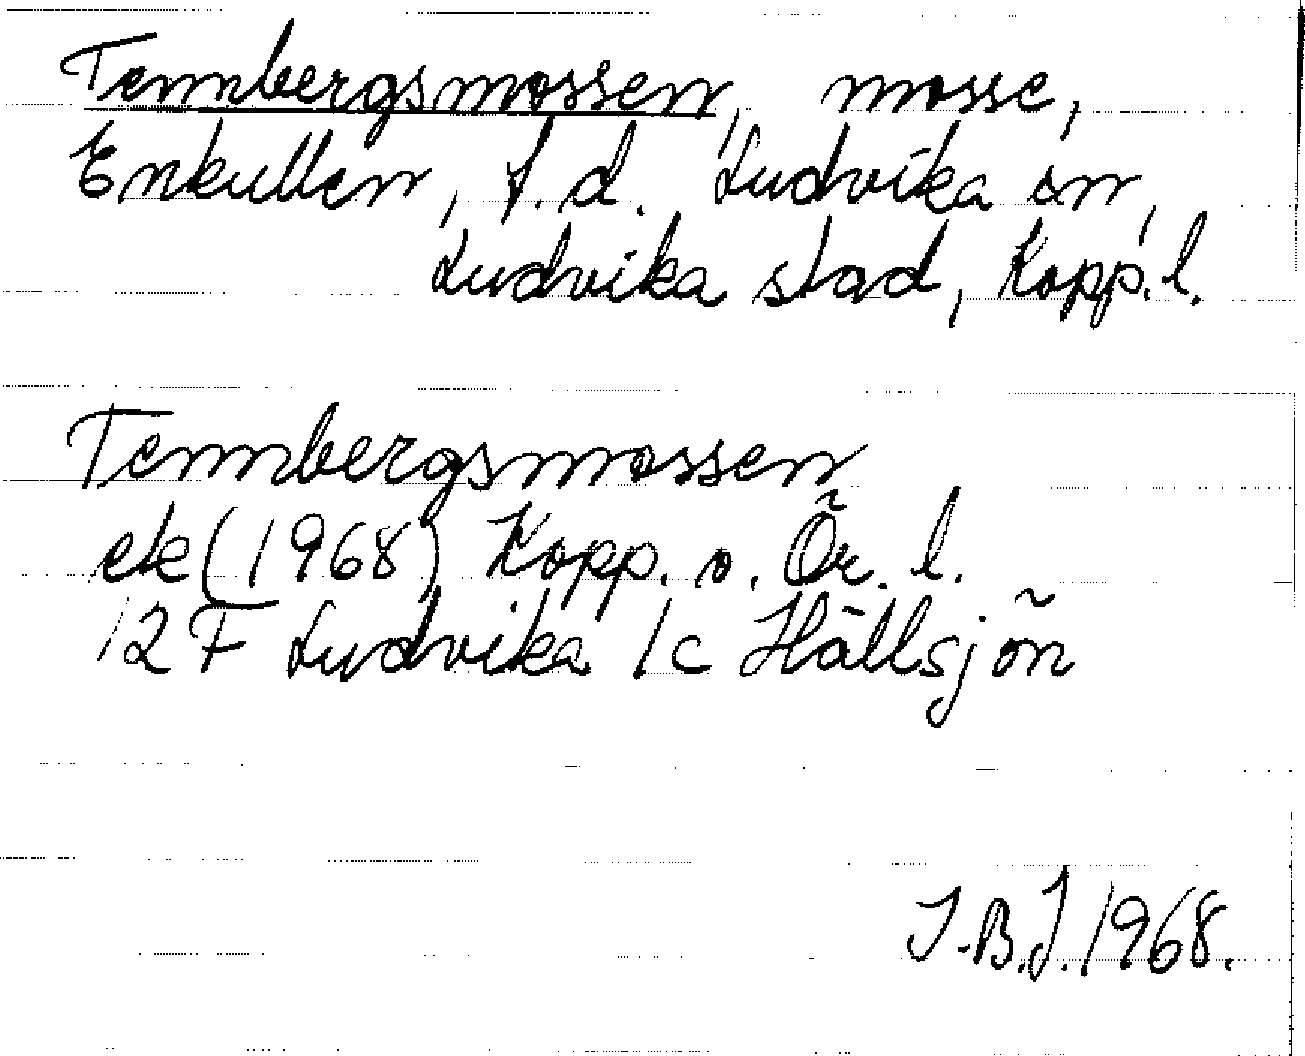 Tennbergsmossen, mosse,
Enkullen, f.d. Ludvika sn,
Ludvika stad, Kopp. l.
Tennbergsmossen
ek (1968) Kopp. o. Ör. l.
12 F Ludvika 1c Hällsjön
I.B.J. 1968.